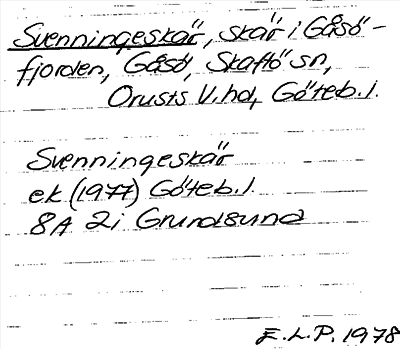 Svenningeskär, skär i Gåsö-
fjorden, Gåsö, Skaftö sn,
Orusts V. hd, Göteb. l.
Svenningeskär
ek (1977) Göteb. l.
8A 2i Grundsund
E.L.P. 1978